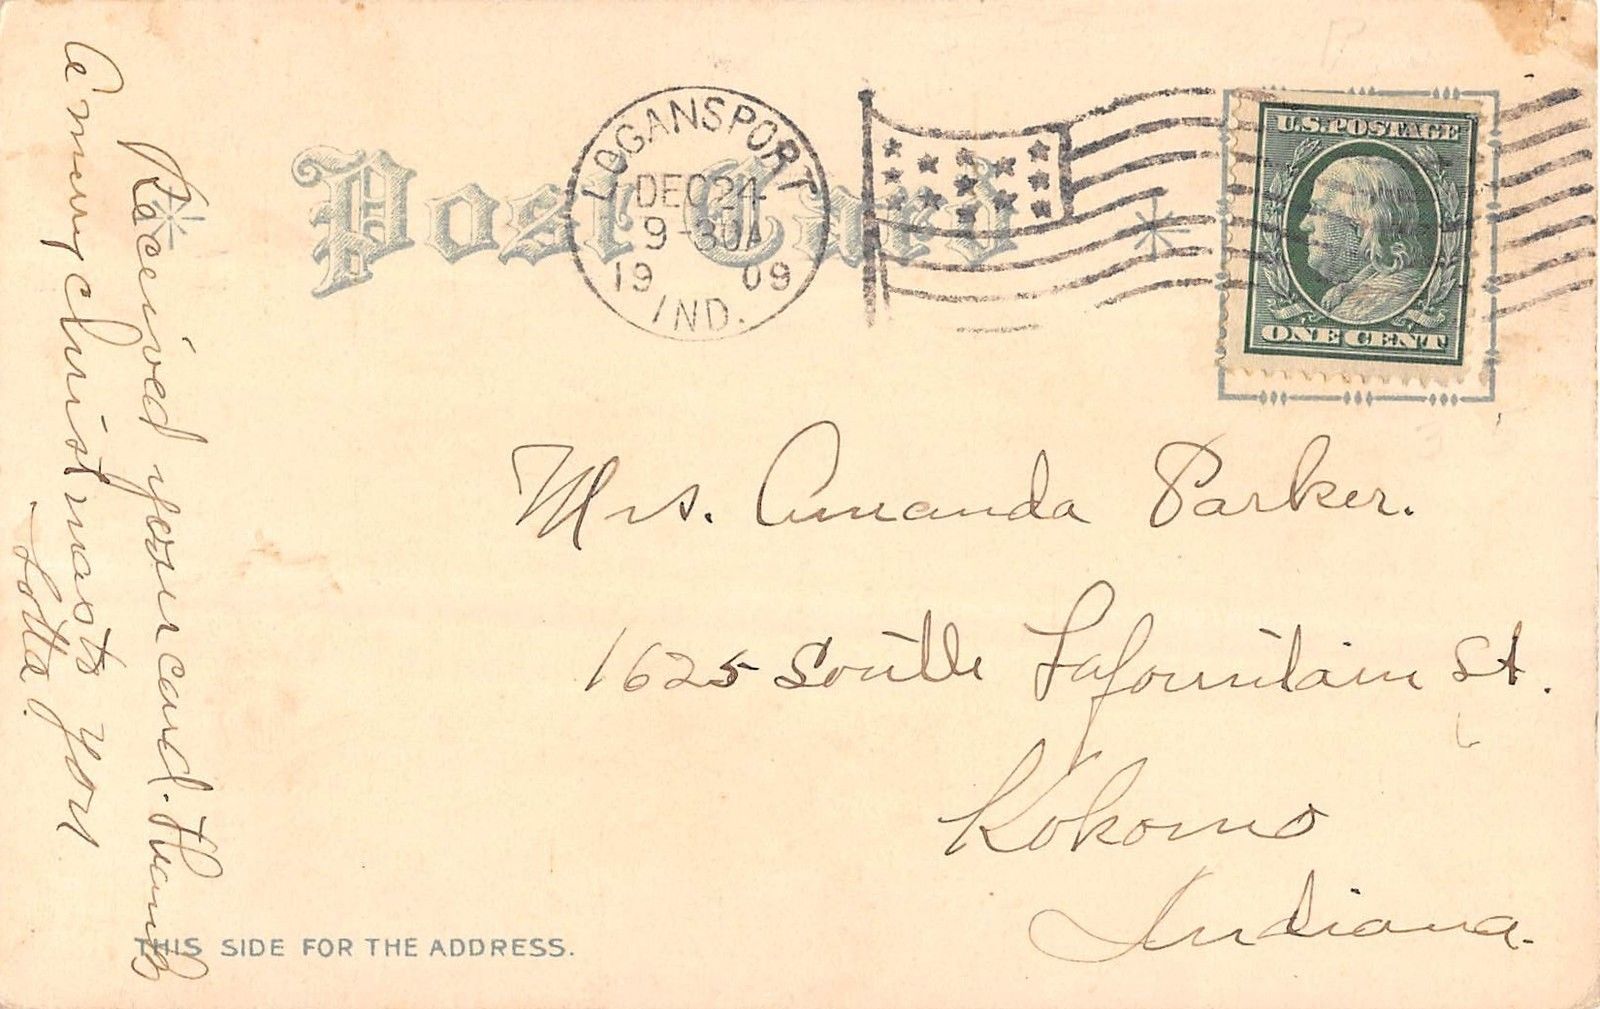 Post Card
LOGANSPORT
DEC 24
9-30A
1909
IND.
U.S. POSTAGE
ONE CENT
Mrs. Amanda Parker.
1625 South Lafountain St.
Kokomo
Indiana.
Received your card. Thanks
A merry christmas to you
Lotta.
THIS SIDE FOR THE ADDRESS.